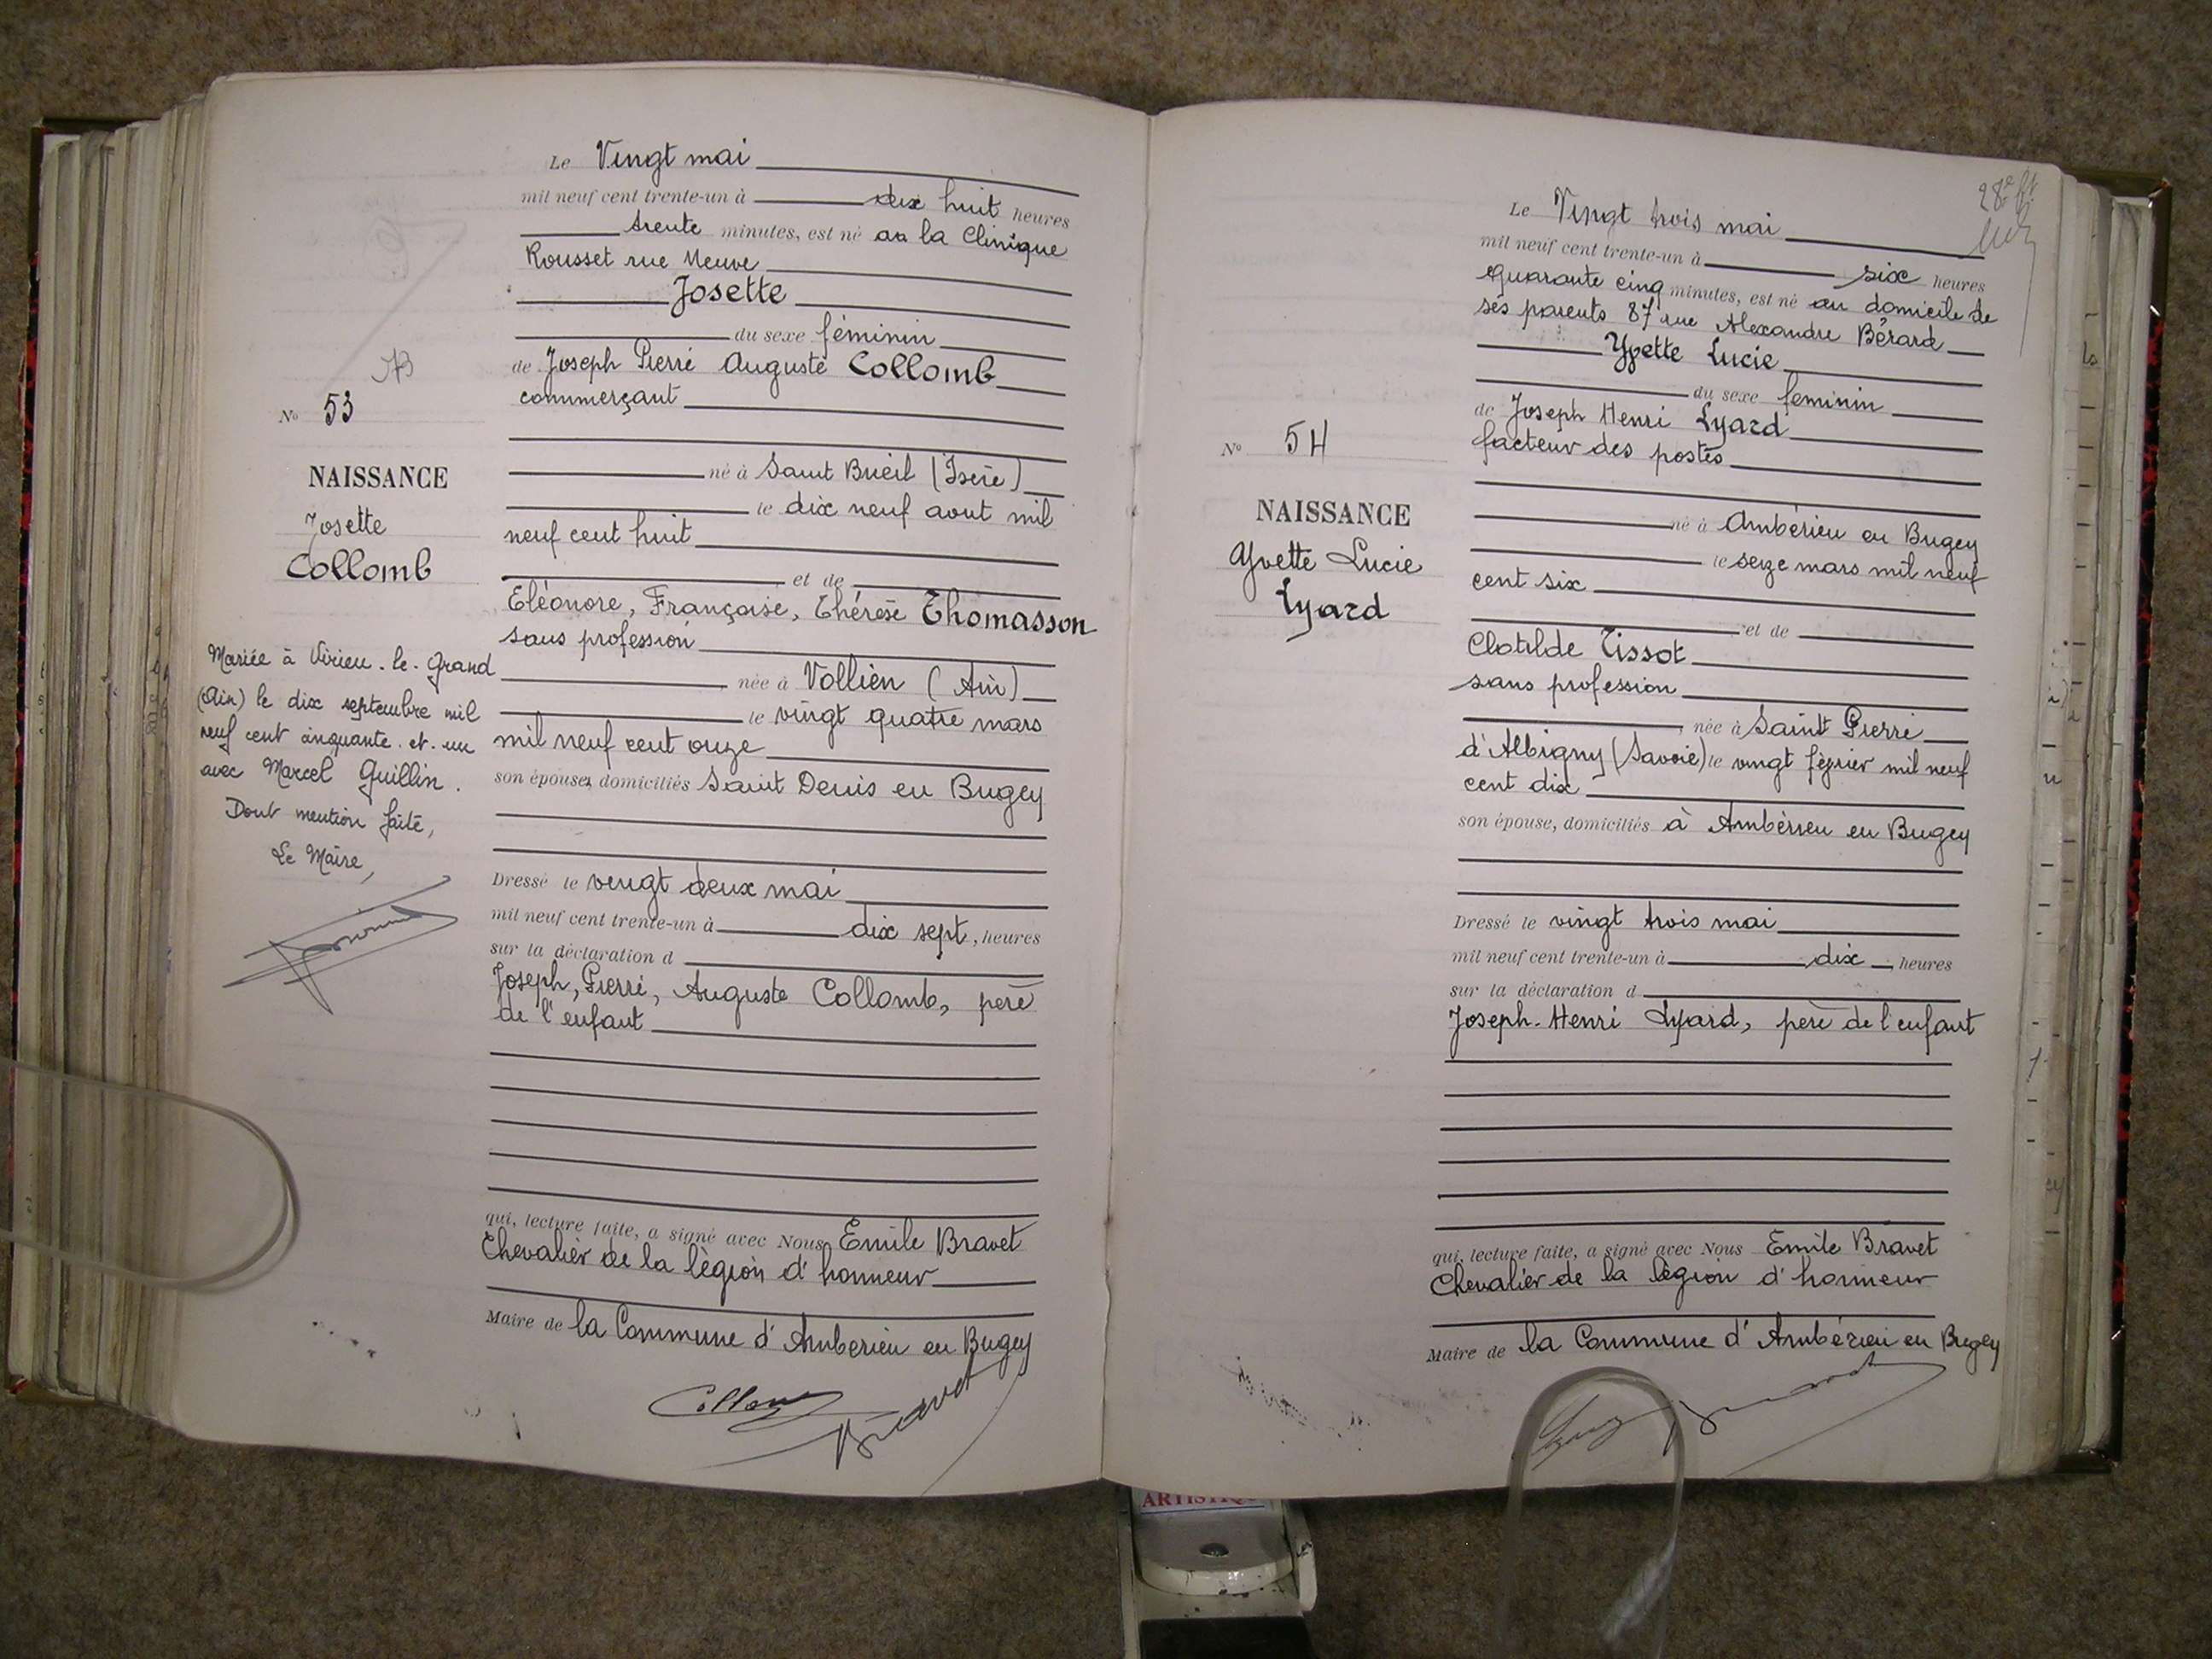 Le Vingt mai
mil neuf cent trente-un à dix huit heures
trente minutes, est né au la Clinique
Rousset rue Neuve
Josette
du sexe féminin
de Joseph Pierre Auguste Collomb
commerçant
né à Saint Bueil (Isère)
le dix neuf aout mil
neuf cent huit
et de
Eléonore, Françoise, Thérèse Thomasson
sans profession
née à Vollien (Ain)
le vingt quatre mars
mil neuf cent onze
son épouse, domiciliés Saint Denis en Bugey
Dressé le vingt deux mai
mil neuf cent trente-un à dix sept, heures
sur la déclaration d
Joseph, Pierre, Auguste Collomb, père
de l'enfant
qui, lecture faite, a signé avec Nous Emile Bravet
Chevalier de la légion d'honneur
Maire de la Commune d'Amberieu en Bugey
Collomb
Bravet
No 53
NAISSANCE
Josette
Collomb
Mariée à Virieu-le-Grand
(Ain) le dix septembre mil
neuf cent cinquante-et-un
avec Marcel Guillin.
Dont mention faite,
Le Maire,
Le Vingt trois mai
mil neuf cent trente-un à six heures
quarante cinq minutes, est né au domicile de
ses parents 87 rue Alexandre Bérard
Yvette Lucie
du sexe féminin
de Joseph Henri Lyard
facteur des postes
né à Ambérieu en Bugey
le seize mars mil neuf
cent six
et de
Clotilde Tissot
sans profession
née à Saint Pierre
d'Albigny (Savoie) le vingt février mil neuf
cent dix
son épouse, domiciliés à Ambérieu en Bugey
Dressé le vingt trois mai
mil neuf cent trente-un à dix heures
sur la déclaration d
Joseph-Henri Lyard, père de l'enfant
qui, lecture faite, a signé avec Nous Emile Bravet
Chevalier de la légion d'honneur
Maire de la Commune d'Ambérieu en Bugey
No 54
NAISSANCE
Yvette Lucie
Lyard